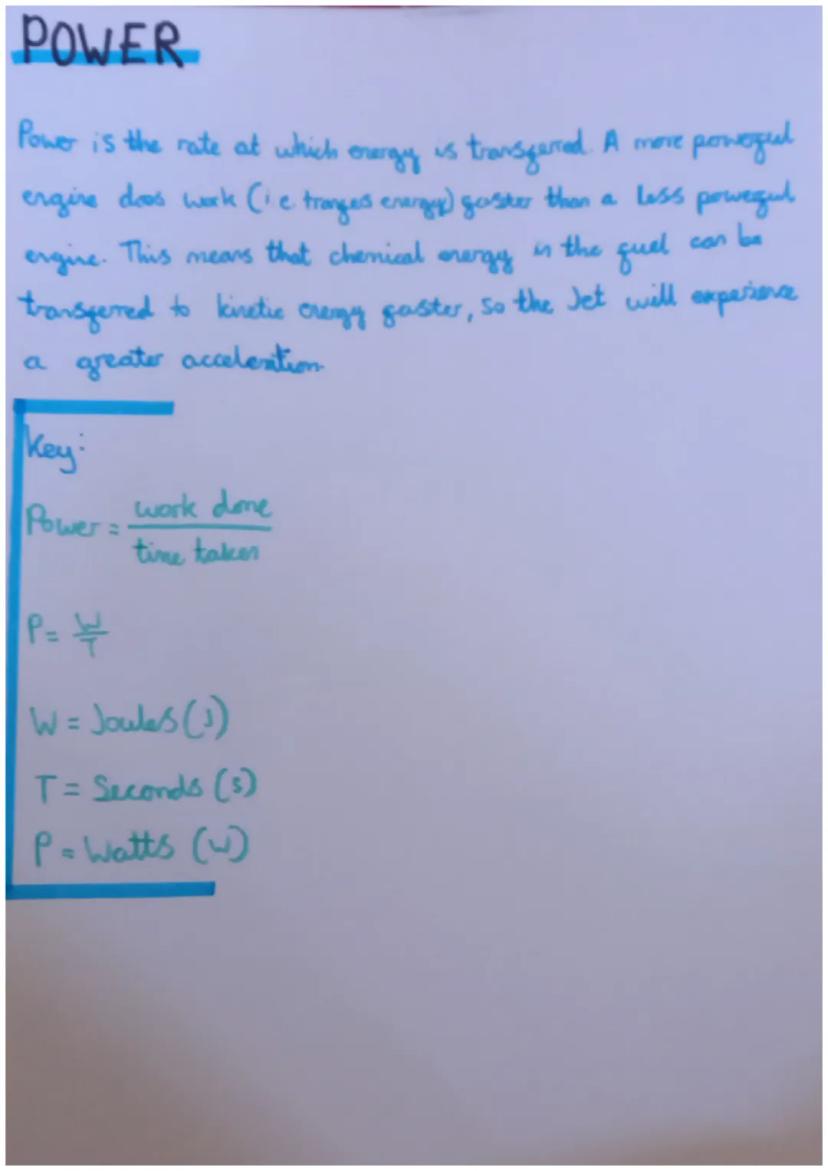 POWER
Power is the rate at which energy is transferred. A more powerful
engine does work (i.e. tranfes energy) faster than a less powerful
engine. This means that chemical energy in the fuel can be
transferred to kinetic energy faster, so the Jet will experience
a greater acceleration.
Key:
Power = work done
time taken
P = W
T
W = Joules (J)
T = Seconds (s)
P = Watts (W)